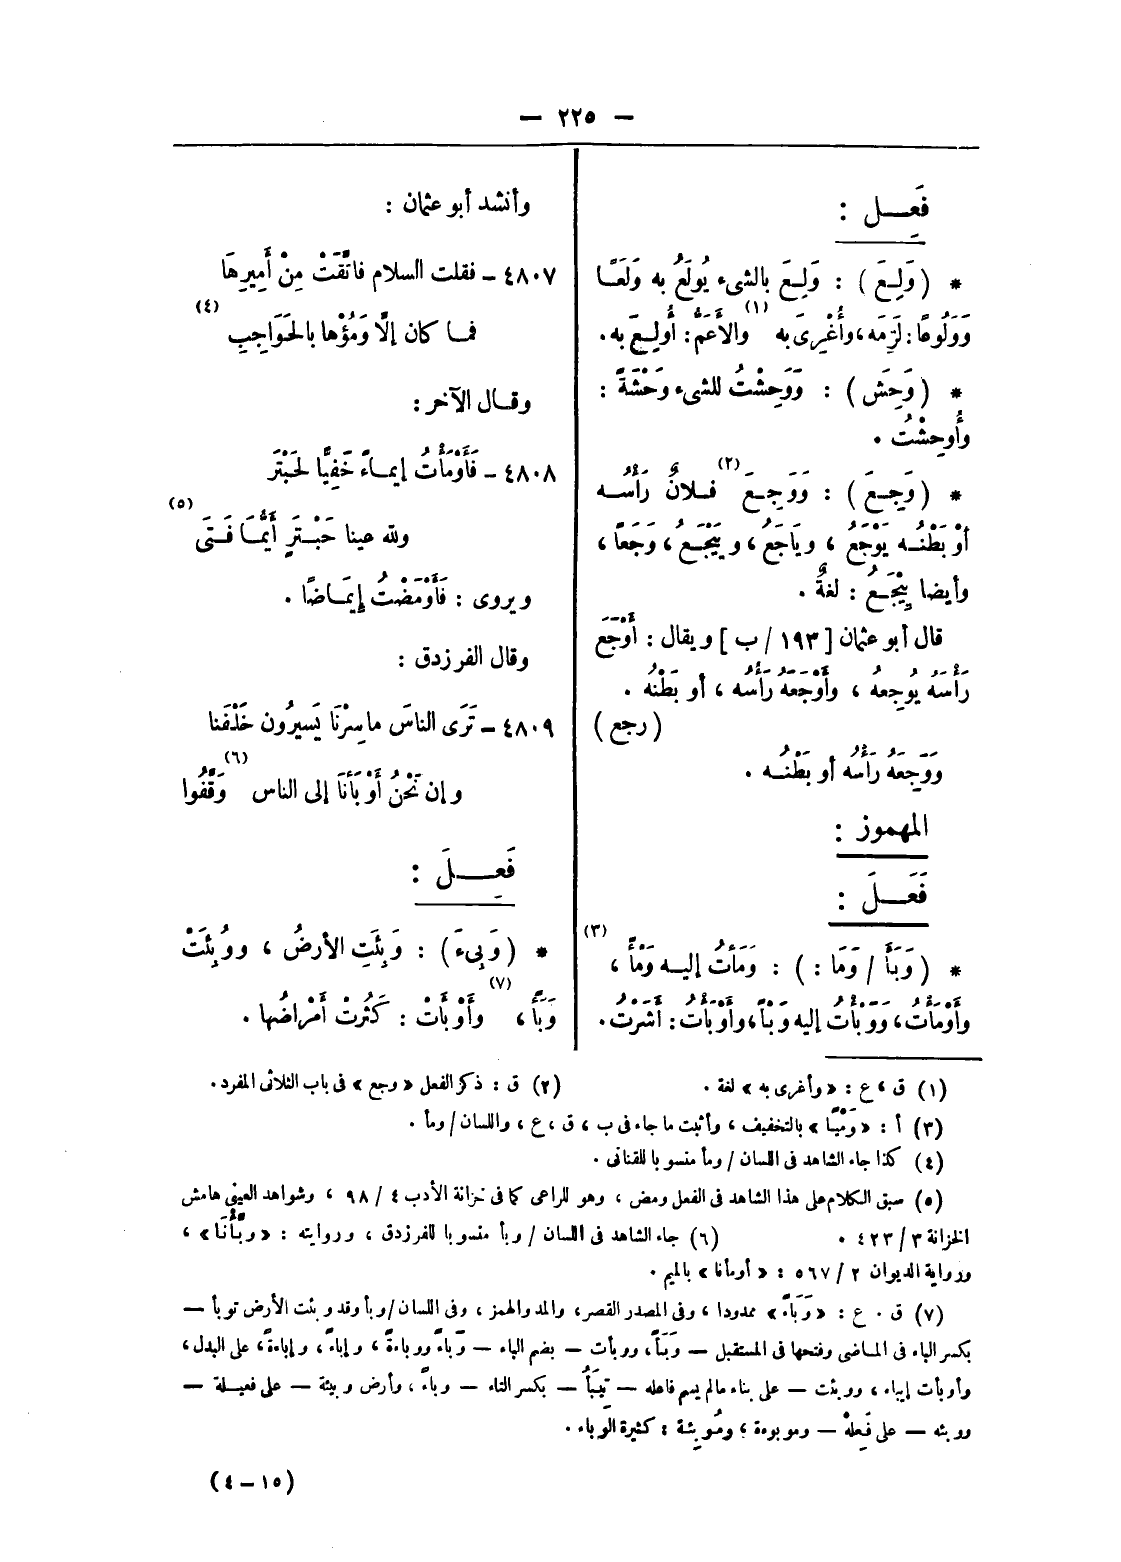 — ٢٢٥ —
فَعِـــل :
* (وَلِعَ) : وَلِعَ بالشىء يُولَعُ به وَلَعًا
وَوَلُوعًا : لَزِمَه، وأُغْرِىَ به (١) والأَعَمُّ : أُولِعَ به.
* (وَحِش) : وَوَحِشْتُ للشىء وَحْشَةً :
وأُوحِشْت .
* (وَجِعَ) : وَوَجِعَ (٢) فلانٌ رأسَه
أو بَطْنَه يَوْجَعُ ، ويَاجَعُ ، ويَيْجَعُ ، وَجَعاً ،
وأيضا يِيْجَعُ : لغةٌ .
قال أبو عثمان [١٩٣ / ب] ويقال : أَوْجَعَ
رَأْسَهُ يُوجِعهُ ، وأَوْجَعَهُ رَأْسُه ، أو بَطْنُه .
(رجع)
وَوَجِعَهُ رَأْسُه أو بَطْنُــه .
المهموز :
فَعَـــلَ :
* (وَبَأ / وَمَا : ) : وَمَأتُ إليه وَمْأً (٣) ،
وأَوْمَأْت، وَوَبَأْتُ إليه وَبْأً، وأَوْبَأت : أَشَرْتُ.
وأنشد أبو عثمان :
٤٨٠٧ – فقلت السلام فاتَّقَتْ مِنْ أَمِيرِهَا
فما كان إلَّا وَمَؤُها بالحَوَاجِبِ (٤)
وقال الآخر :
٤٨٠٨ – فَأَوْمَأْتُ إيماءً خَفِيًّا لحَبْتَر
ولله عينا حَبْتَرٍ أيُّمَا فَتَى (٥)
ويروى : فَأَوْمَضْتُ إيمَاضًا .
وقال الفرزدق :
٤٨٠٩ – تَرَى الناسَ ماسِرْنَا يَسيرُون خَلْفَنا
وإن نَحْنُ أَوْبَأْنَا إلى الناس وَقَّفُوا (٦)
فَعِـــلَ :
* (وَبِىءَ) : وَبِئَتِ الأرضُ ، ووُبِئَتْ
وَبَأً ، (٧) وأَوْبَأَتْ : كَثُرتْ أَمْراضُها .
(١) ق ، ع : «وأغرى به» لغة . (٢) ق : ذكر الفعل «وجع» فى باب الثلاثى المفرد.
(٣) أ : «وَمْيًا» بالتخفيف ، وأثبت ما جاء فى ب ، ق ، ع ، واللسان / ومأ .
(٤) كذا جاء الشاهد فى اللسان / ومأ منسوبا للقنانى .
(٥) سبق الكلام على هذا الشاهد فى الفعل ومض ، وهو للراعى كما فى خزانة الأدب ٤ / ٩٨ ، وشواهد العينى هامش
الخزانة ٣ / ٤٢٣ . (٦) جاء الشاهد فى اللسان / وبأ منسوبا للفرزدق ، وروايته : «وبَّأْنَا» ،
ورواية الديوان ٢ / ٥٦٧ : «أومأنا» بالميم .
(٧) ق . ع : «وَبَاءً» ممدودا ، وفى المصدر القصر، والمد والهمز ، وفى اللسان / وبأ وقد وبئت الأرض توبأ —
بكسر الباء فى الماضى وفتحها فى المستقبل — وَبَأً، ووبأت — بضم الباء — وَبَاءً ووباءة ، وإباءً ، وإباءةً ، على البدل ،
وأوبأت إيباء ، ووبئت — على بناء مالم يسم فاعله — تِيبَأُ — بكسر التاء — وباءً ، وأرض وبيئة — على فعيلة —
ووبئه — على فَعِلهْ — وموبوءة ، ومُوبِئَة : كثيرة الوباء .
(١٥ – ٤)